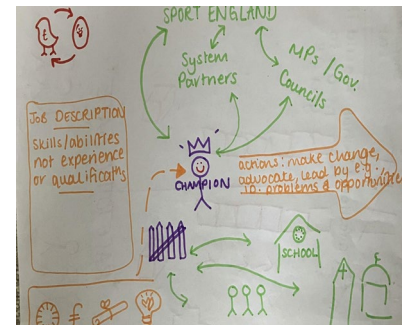 SPORT ENGLAND
System
Partners
MPs / Gov.
Councils
JOB DESCRIPTION
Skills/abilities
not experience
or qualificatns
CHAMPION
actions: make change,
advocate, lead by e.g.,
ID. problems & opportunities
SCHOOL
£